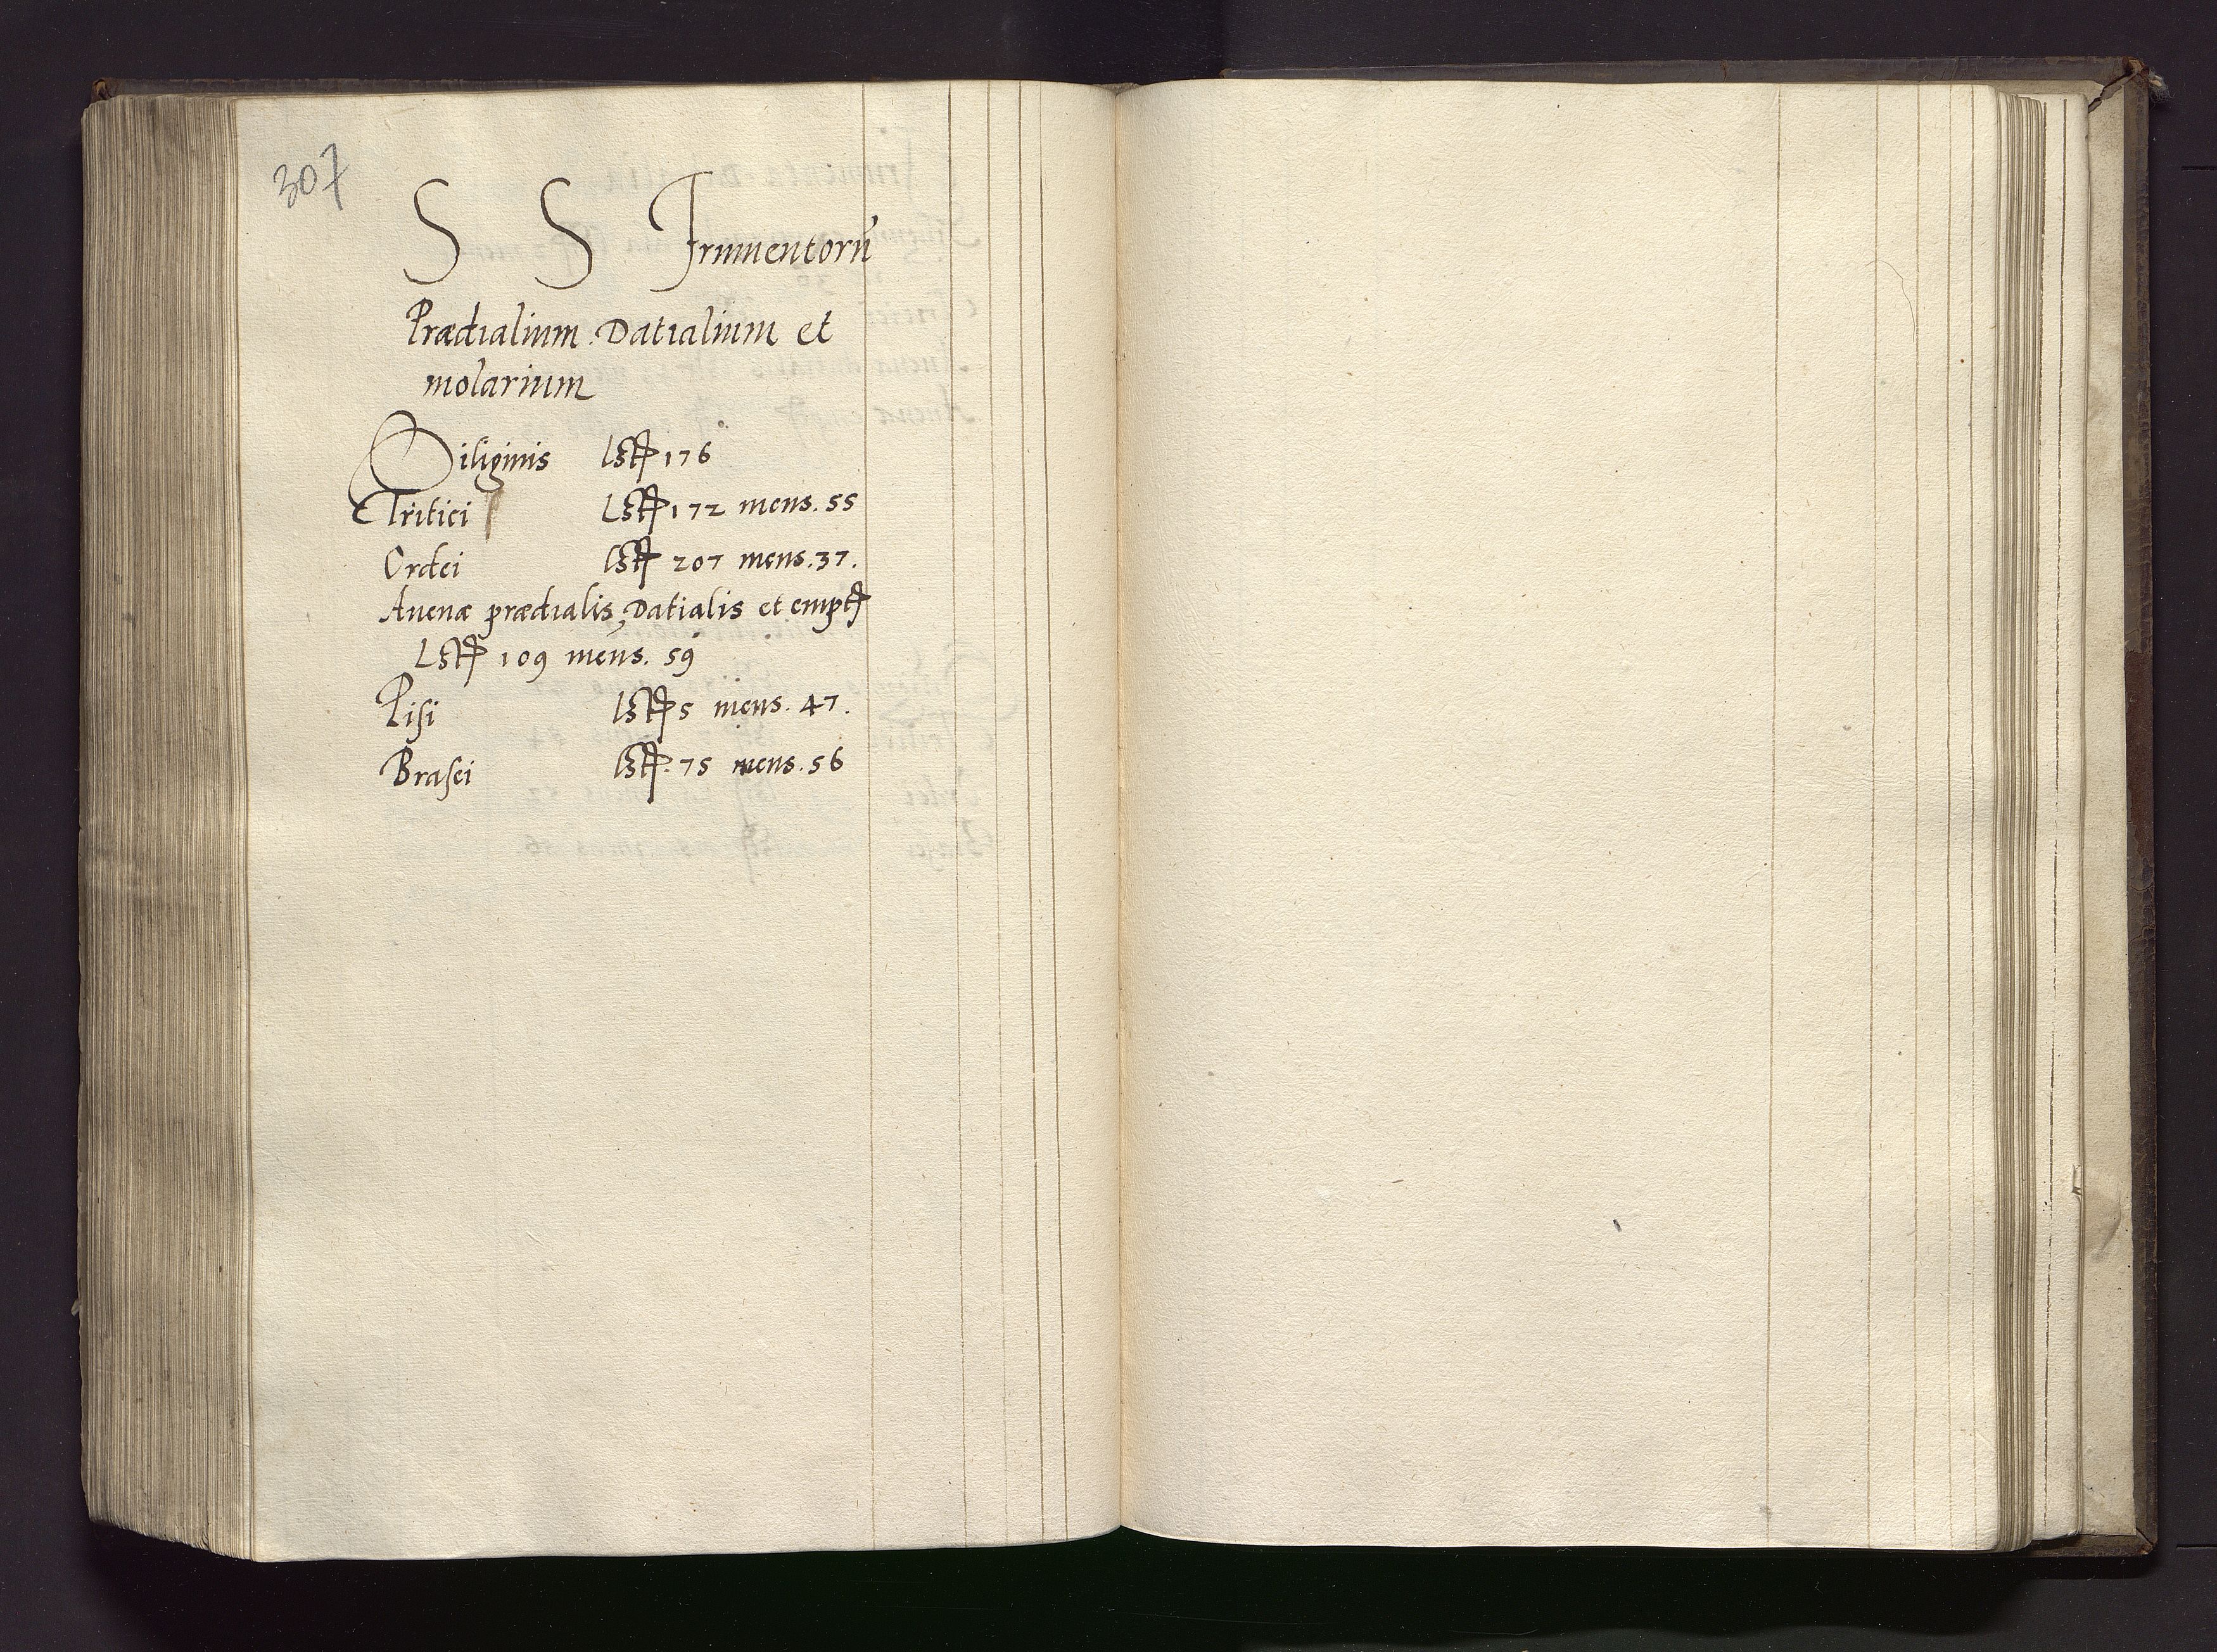 307
S S Frumentorū
Prædialium Datialium et
molarium
Siliginis lstp 176
Tritici lstp 172 mens. 55
Ordei lst 207 mens. 37.
Auenæ prædialis, Datialis et empt
Lstp 109 mens. 59
Pisi lstp 5 mens. 47.
Brasei lstp. 75 mens. 56